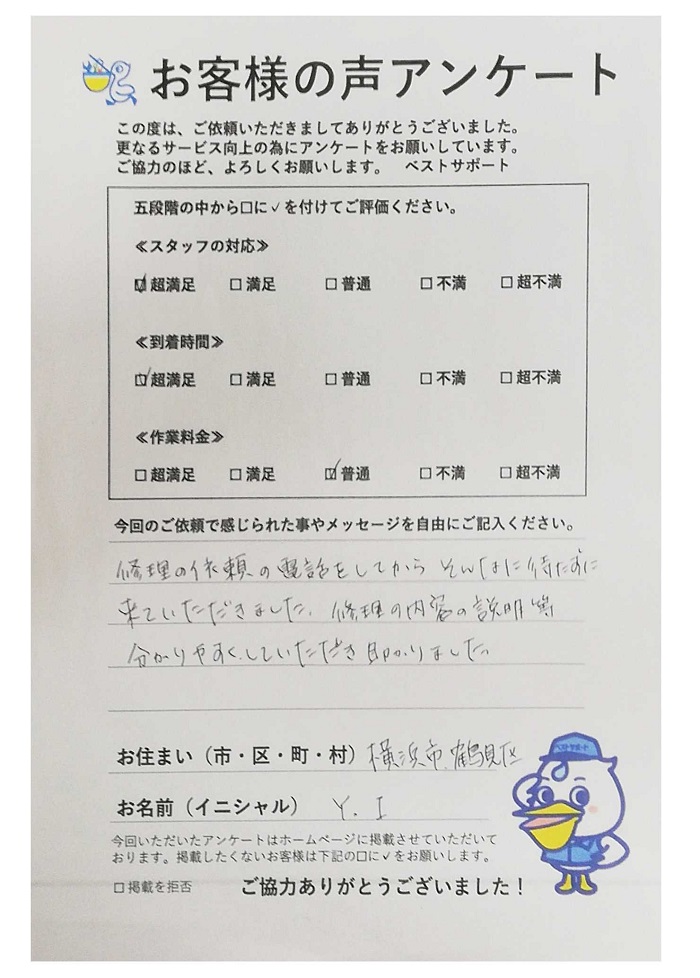 お客様の声アンケート
この度は、ご依頼いただきましてありがとうございました。
更なるサービス向上の為にアンケートをお願いしています。
ご協力のほど、よろしくお願いします。　ベストサポート
五段階の中から□に✓を付けてご評価ください。
≪スタッフの対応≫
☑超満足　□満足　□普通　□不満　□超不満
≪到着時間≫
☑超満足　□満足　□普通　□不満　□超不満
≪作業料金≫
□超満足　□満足　☑普通　□不満　□超不満
今回のご依頼で感じられた事やメッセージを自由にご記入ください。
修理の依頼の電話をしてから そんなに待たずに
来ていただきました。修理の内容の説明等
分かりやすくしていただき助かりました。
お住まい（市・区・町・村）横浜市鶴見区
ベストサポート
お名前（イニシャル）　Y. I
今回いただいたアンケートはホームページに掲載させていただいて
おります。掲載したくないお客様は下記の□に✓をお願いします。
□掲載を拒否　ご協力ありがとうございました！